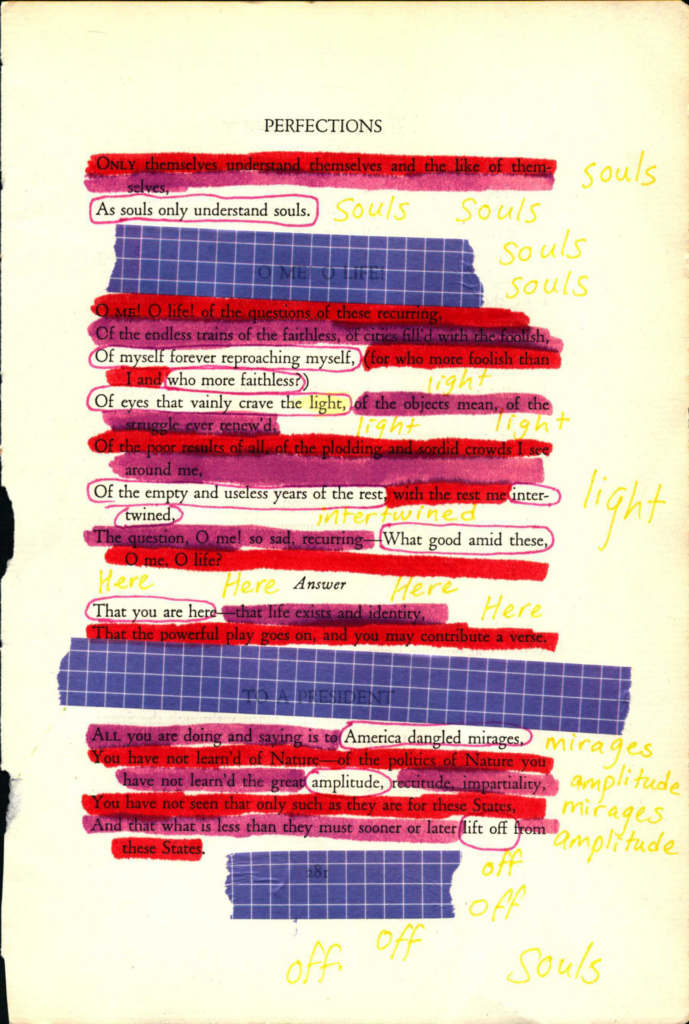 PERFECTIONS
ONLY themselves understand themselves and the like of them-
souls
selves,
As souls only understand souls. souls souls
souls
O ME! O LIFE!
souls
O ME! O life! of the questions of these recurring,
Of the endless trains of the faithless, of cities fill'd with the foolish,
Of myself forever reproaching myself, (for who more foolish than
I and who more faithless?)
light
Of eyes that vainly crave the light, of the objects mean, of the
struggle ever renew'd,
light light
Of the poor results of all, of the plodding and sordid crowds I see
around me,
Of the empty and useless years of the rest, with the rest me inter-
light
twined,
intertwined
The question, O me! so sad, recurring—What good amid these,
O me, O life?
Here Here Answer Here
That you are here—that life exists and identity,
Here
That the powerful play goes on, and you may contribute a verse.
TO A PRESIDENT
ALL you are doing and saying is to America dangled mirages,
mirages
You have not learn'd of Nature—of the politics of Nature you
have not learn'd the great amplitude, rectitude, impartiality,
amplitude
You have not seen that only such as they are for these States,
mirages
And that what is less than they must sooner or later lift off from
amplitude
these States.
off
281
off
off
off
souls